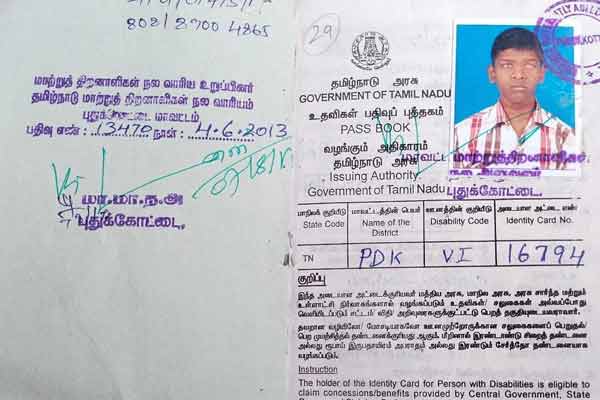 8021 8700 4865
மாற்றுத் திறனாளிகள் நல வாரிய உறுப்பினர்
தமிழ்நாடு மாற்றுத் திறனாளிகள் நல வாரியம்
புதுக்கோட்டை மாவட்டம்
பதிவு எண்: 13470 நாள்: 4.6.2013
புதுக்கோட்டை.
29
தமிழ்நாடு அரசு
GOVERNMENT OF TAMIL NADU
உதவிகள் பதிவுப் புத்தகம்
PASS BOOK
வழங்கும் அதிகாரம்
தமிழ்நாடு அரசு
Issuing Authority
Government of Tamil Nadu
புதுக்கோட்டை.
மாநிலக் குறியீடு மாவட்டத்தின் பெயர் ஊனத்தின் குறியீடு அடையாள அட்டை எண்
State Code Name of the District Disability Code Identity Card No.
TN PDK VI 16794
குறிப்பு
இந்த அடையாள அட்டைக்குரியவர் மத்திய அரசு, மாநில அரசு, அரசு சார்ந்த மற்றும்
உள்ளாட்சி நிர்வாகங்களால் வழங்கப்படும் உதவிகள்/ சலுகைகள் அவ்வப்போது
வெளியிடப்படும் சட்டம்/ விதி/ அறிவுரைகளுக்குட்பட்டு பெறத் தகுதியுடையவராவார்.
தவறான வழியிலோ/ மோசடியாகவோ ஊனமுற்றோருக்கான சலுகைகளைப் பெறுதல்/
பெற முயற்சித்தல் தண்டனைக்குரியது ஆகும். மீறினால் இரண்டாண்டு சிறைத் தண்டனை
அல்லது ரூபாய் இருபதாயிரம் அபராதம் அல்லது இரண்டும் சேர்த்தோ தண்டனையாக
வழங்கப்படும்.
Instruction
The holder of the Identity Card for Person with Disabilities is eligible to
claim concessions/benefits provided by Central Government, State